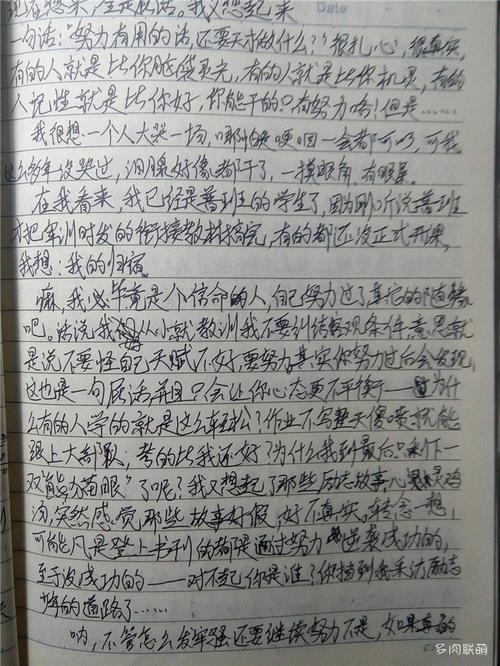 现在想来,全是废话。我又想起来 Date
一句话:"努力有用的话,还要天才做什么?"很扎心,很真实,
有的人就是比你脑袋灵光,有的人就是比你机灵,有的
人记性就是比你好,你能干的只有努力啥!但是……
我很想一个人大哭一场,哪怕哽咽一会都可以,可我
这么多年没哭过,泪腺好像都干了,一摸眼角,有眼屎。
在我看来,我已经是普班的学生了,因为刚听说普班
才把军训时发的衔接教材搞完,有的都还没正式开课,
我想:我的归宿。
嘛,我必毕竟是个信命的人,自己努力过了其它的随缘
吧。话说我 从小就教训我不要纠结客观条件,意思就
是说不要怪自己天赋不好,要努力。其实你努力过后会发现,
这也是一句屁话,并且只会让你心态更不平衡——为什
么有的人学的就是这么轻松?作业不写整天傻喷就能
跟上大部队,考的比我还好?为什么我到最后只剩下一
双"能力苗眼"了呢?我又想起了那些励志故事,心灵鸡
汤,突然感觉那些故事好假,好不真实。转念一想,
可能凡是登上书刊的都是通过努力逆袭成功的,
至于没成功的——对不起你是谁?你挡到我采访励志
少年的道路了……
呐,不管怎么发牢骚还要继续努力不是,如果真的
多肉联萌